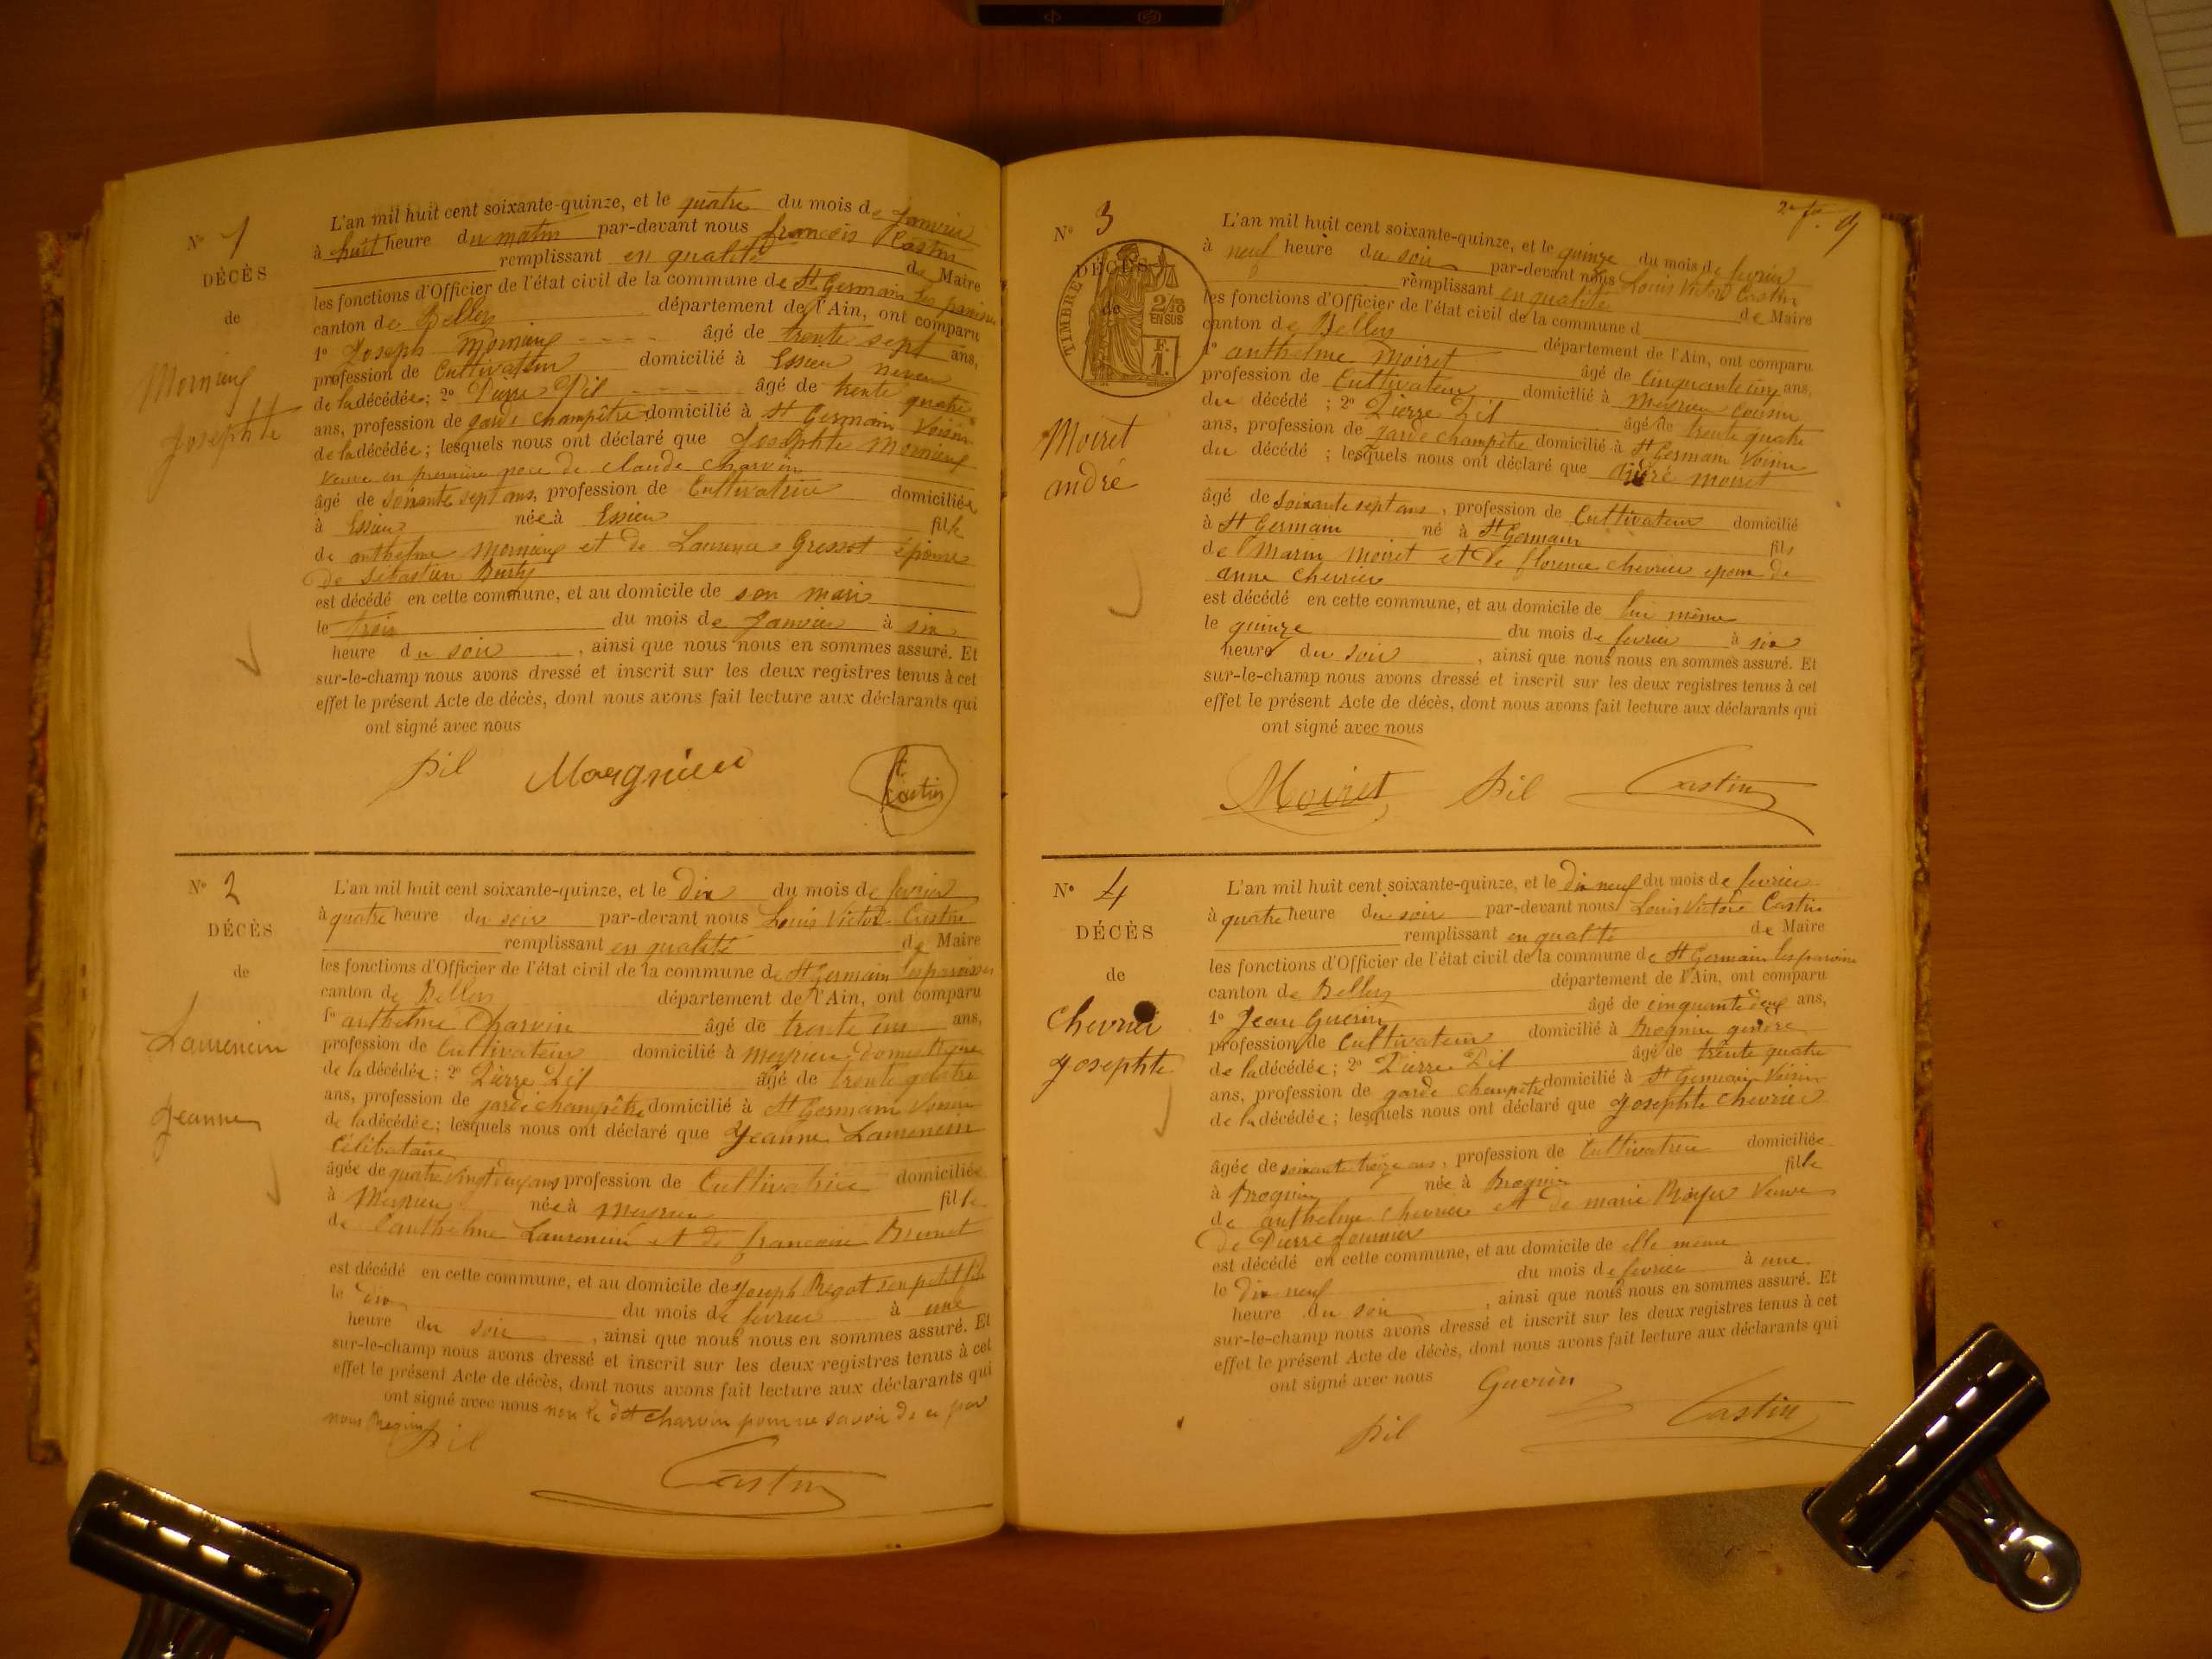 N° 1
DÉCÈS
de
Josephte
L'an mil huit cent soixante-quinze, et le quatre du mois de Janvier
à huit heure du matin par-devant nous françois Castin
remplissant en qualité de Maire
les fonctions d'Officier de l'état civil de la commune de St Germain les paroisses
canton de Belley département de l'Ain, ont comparu
1° Joseph âgé de trente sept ans,
profession de Cultivateur domicilié à Essieu neveu
de la décédée; 2° Pierre Pil âgé de trente quatre
ans, profession de garde champêtre domicilié à St Germain Voisin
de la décédée; lesquels nous ont déclaré que Josephte
Veuve en première noce de claude charvin
âgé de soixante sept ans, profession de Cultivatrice domiciliée
à Essieu née à Essieu fille
de anthelme et de Laurence Gressot épouse
de Sébastien
est décédé en cette commune, et au domicile de son mari
le trois du mois de Janvier à six
heure du soir, ainsi que nous nous en sommes assuré. Et
sur-le-champ nous avons dressé et inscrit sur les deux registres tenus à cet
effet le présent Acte de décès, dont nous avons fait lecture aux déclarants qui
ont signé avec nous
Pil
Castin
N° 2
DÉCÈS
de
Laurencin
Jeanne
L'an mil huit cent soixante-quinze, et le dix du mois de fevrier
à quatre heure du soir par-devant nous Louis Victor Castin
remplissant en qualité de Maire
les fonctions d'Officier de l'état civil de la commune de St Germain les paroisses
canton de Belley département de l'Ain, ont comparu
1° anthelme Charvin âgé de trente un ans,
profession de Cultivateur domicilié à meyrieu domestique
de la décédée; 2° Pierre Pil âgé de trente quatre
ans, profession de garde champêtre domicilié à St Germain Voisin
de la décédée; lesquels nous ont déclaré que Jeanne Laurencin
Célibataire
âgée de quatre vingt deux ans profession de Cultivatrice domiciliée
à Meyrieu née à meyrieu fille
de anthelme Laurencin et de francoise Brunet
est décédé en cette commune, et au domicile de Joseph Regot son petit fils
le dix du mois de fevrier à une
heure du soir, ainsi que nous nous en sommes assuré. Et
sur-le-champ nous avons dressé et inscrit sur les deux registres tenus à cet
effet le présent Acte de décès, dont nous avons fait lecture aux déclarants qui
ont signé avec nous non le dit charvin pour ne savoir de ce par
nous Requis
Pil
Castin
N° 3
DÉCÈS
de
TIMBRE
2/10
EN SUS
F.
1.
Moiret
andré
L'an mil huit cent soixante-quinze, et le quinze du mois de fevrier
à neuf heure du soir par-devant nous Louis Victor Castin
remplissant en qualité de Maire
les fonctions d'Officier de l'état civil de la commune d
canton de Belley département de l'Ain, ont comparu
1° anthelme Moiret âgé de Cinquante cinq ans,
profession de Cultivateur domicilié à meyrieu Cousin
du décédé ; 2° Pierre Pil âgé de trente quatre
ans, profession de garde champêtre domicilié à St Germain Voisin
du décédé ; lesquels nous ont déclaré que André moiret
âgé de soixante sept ans, profession de Cultivateur domicilié
à St Germain né à St Germain fils
de Marin moiret et de florence chevrier epoux de
anne chevrier
est décédé en cette commune, et au domicile de lui même
le quinze du mois de fevrier à six
heure du soir, ainsi que nous nous en sommes assuré. Et
sur-le-champ nous avons dressé et inscrit sur les deux registres tenus à cet
effet le présent Acte de décès, dont nous avons fait lecture aux déclarants qui
ont signé avec nous
Moiret Pil Castin
N° 4
DÉCÈS
de
Chevrier
Josephte
L'an mil huit cent soixante-quinze, et le dix neuf du mois de fevrier
à quatre heure du soir par-devant nous Louis Victor Castin
remplissant en qualité de Maire
les fonctions d'Officier de l'état civil de la commune de St Germain les paroisses
canton de Belley département de l'Ain, ont comparu
1° Jean Guerin âgé de cinquante deux ans,
profession de Cultivateur domicilié à Brognin gendre
de la décédée; 2° Pierre Pil âgé de trente quatre
ans, profession de garde champêtre domicilié à St Germain Voisin
de la décédée; lesquels nous ont déclaré que Josephte Chevrier
âgée de soixante treize ans, profession de Cultivatrice domiciliée
à Brognin née à Brognin fille
de anthelme chevrier et de marie Royer Veuve
de Pierre fournier
est décédé en cette commune, et au domicile de elle meme
le dix neuf du mois de fevrier à une
heure du soir, ainsi que nous nous en sommes assuré. Et
sur-le-champ nous avons dressé et inscrit sur les deux registres tenus à cet
effet le présent Acte de décès, dont nous avons fait lecture aux déclarants qui
ont signé avec nous Guerin
Pil Castin